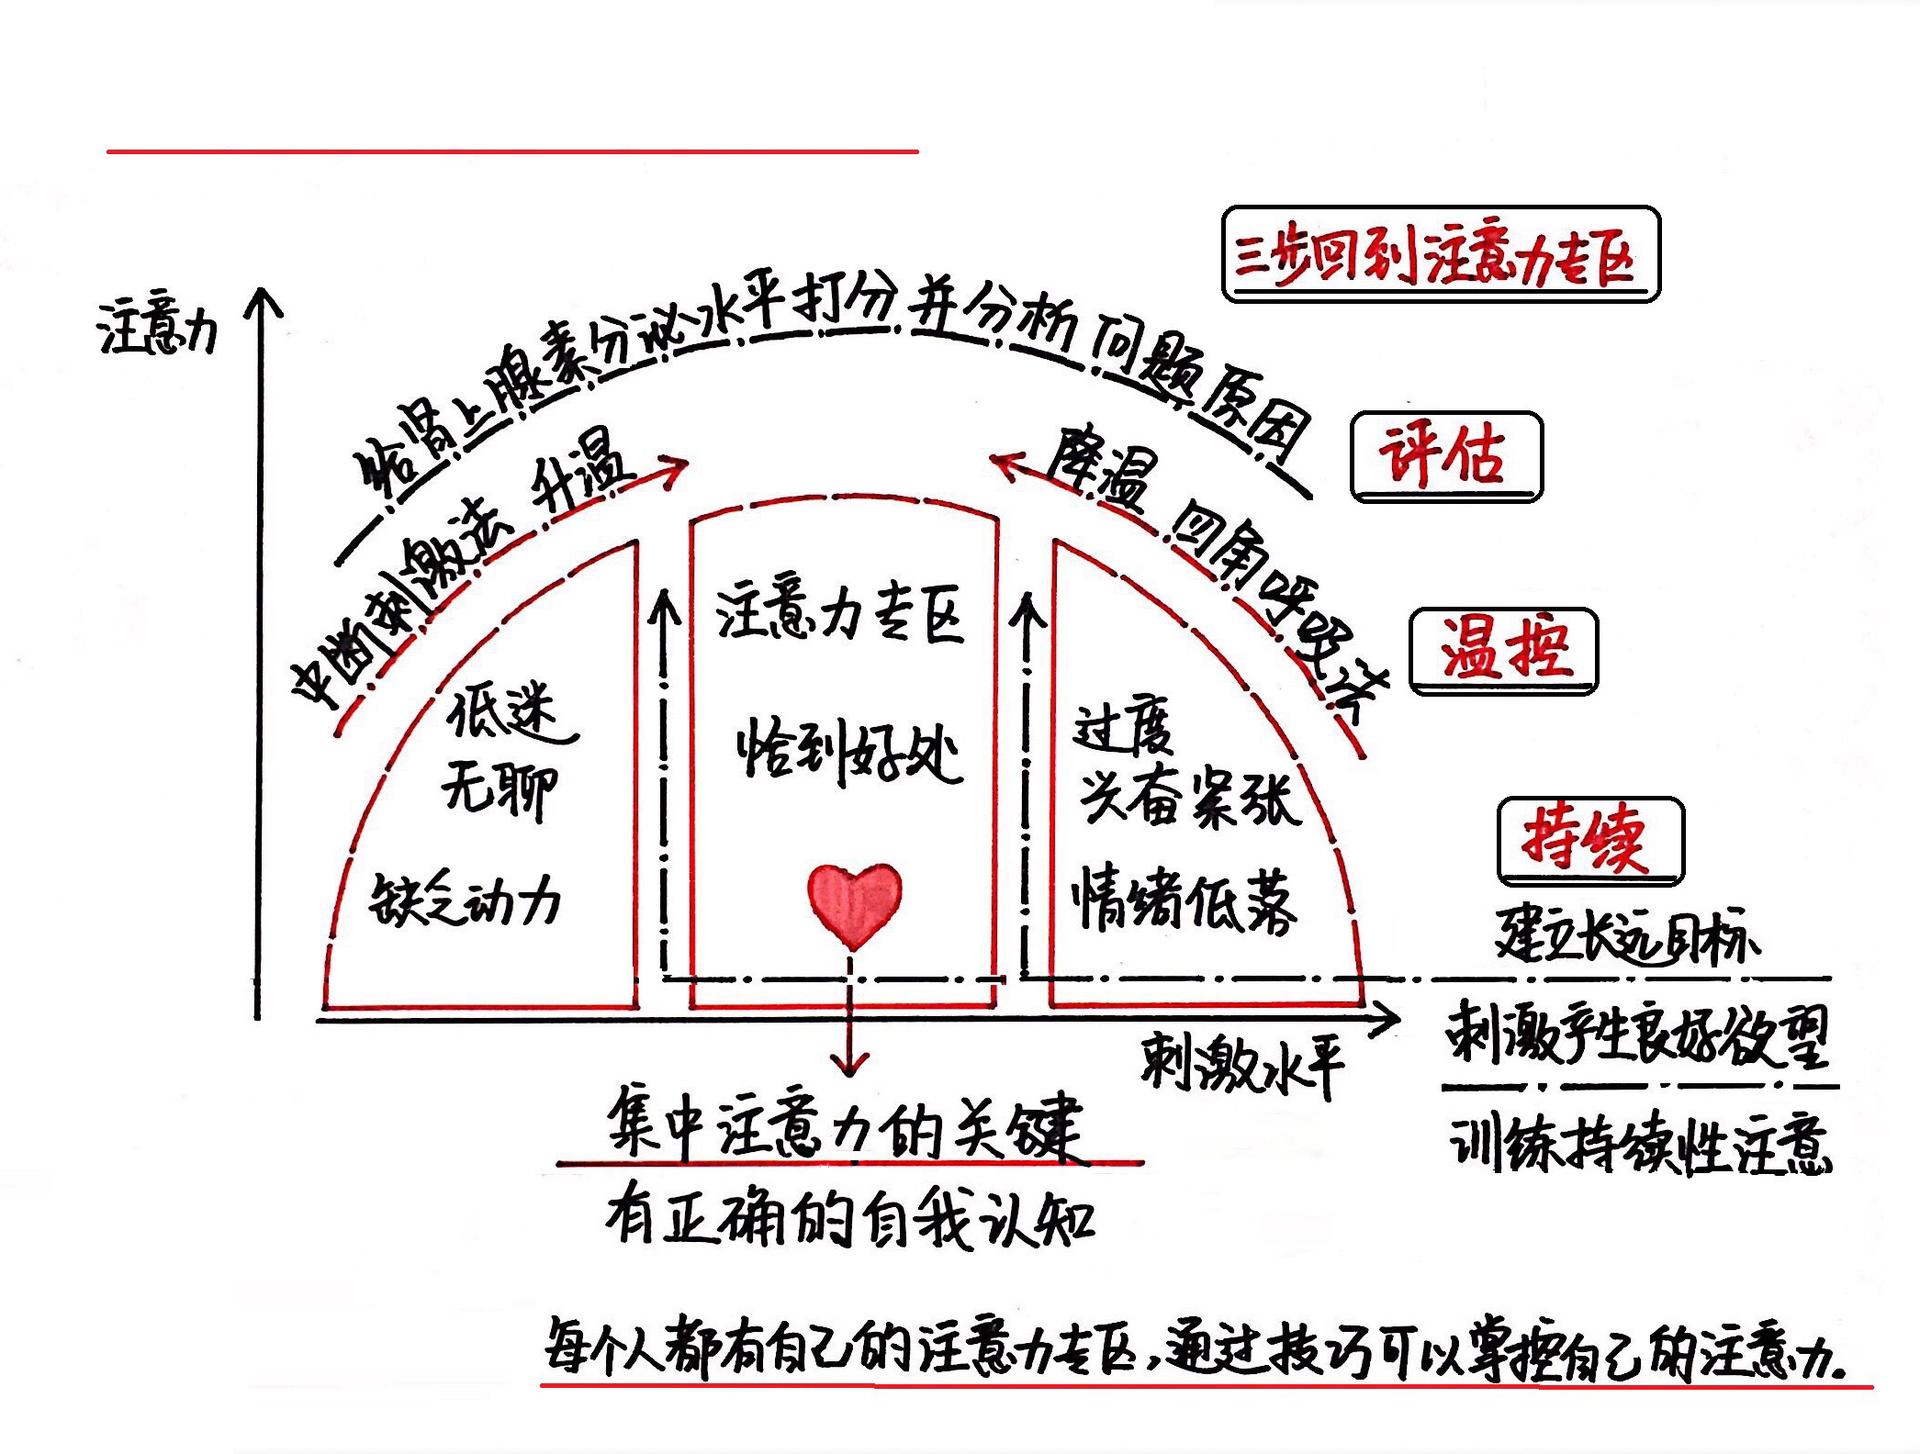 三步回到注意力专区
注意力
给肾上腺素分泌水平打分并分析问题原因
评估
中断刺激法 升温
降温 四角呼吸法
温控
注意力专区
恰到好处
低迷
无聊
缺乏动力
过度
兴奋紧张
情绪低落
持续
建立长远目标
刺激产生良好欲望
训练持续性注意
刺激水平
集中注意力的关键
有正确的自我认知
每个人都有自己的注意力专区,通过技巧可以掌控自己的注意力.